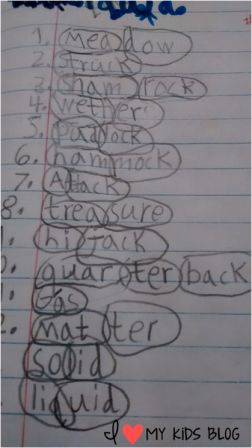 1. meadow
2. struck
3. sham rock
4. wether
5. padlock
6. hammock
7. Attack
8. treasure
hijack
quarterback
Gas
matter
solid
liquid
I ❤ MY KIDS BLOG